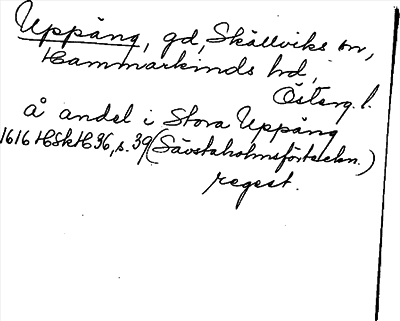 Uppäng, gd, Skällviks sn,
Hammarkinds hd,
Östерg. l.
å andel i Stora Uppäng
1616 HSkH 36, s. 39 (Sävstaholmsförteckn.)
regest.